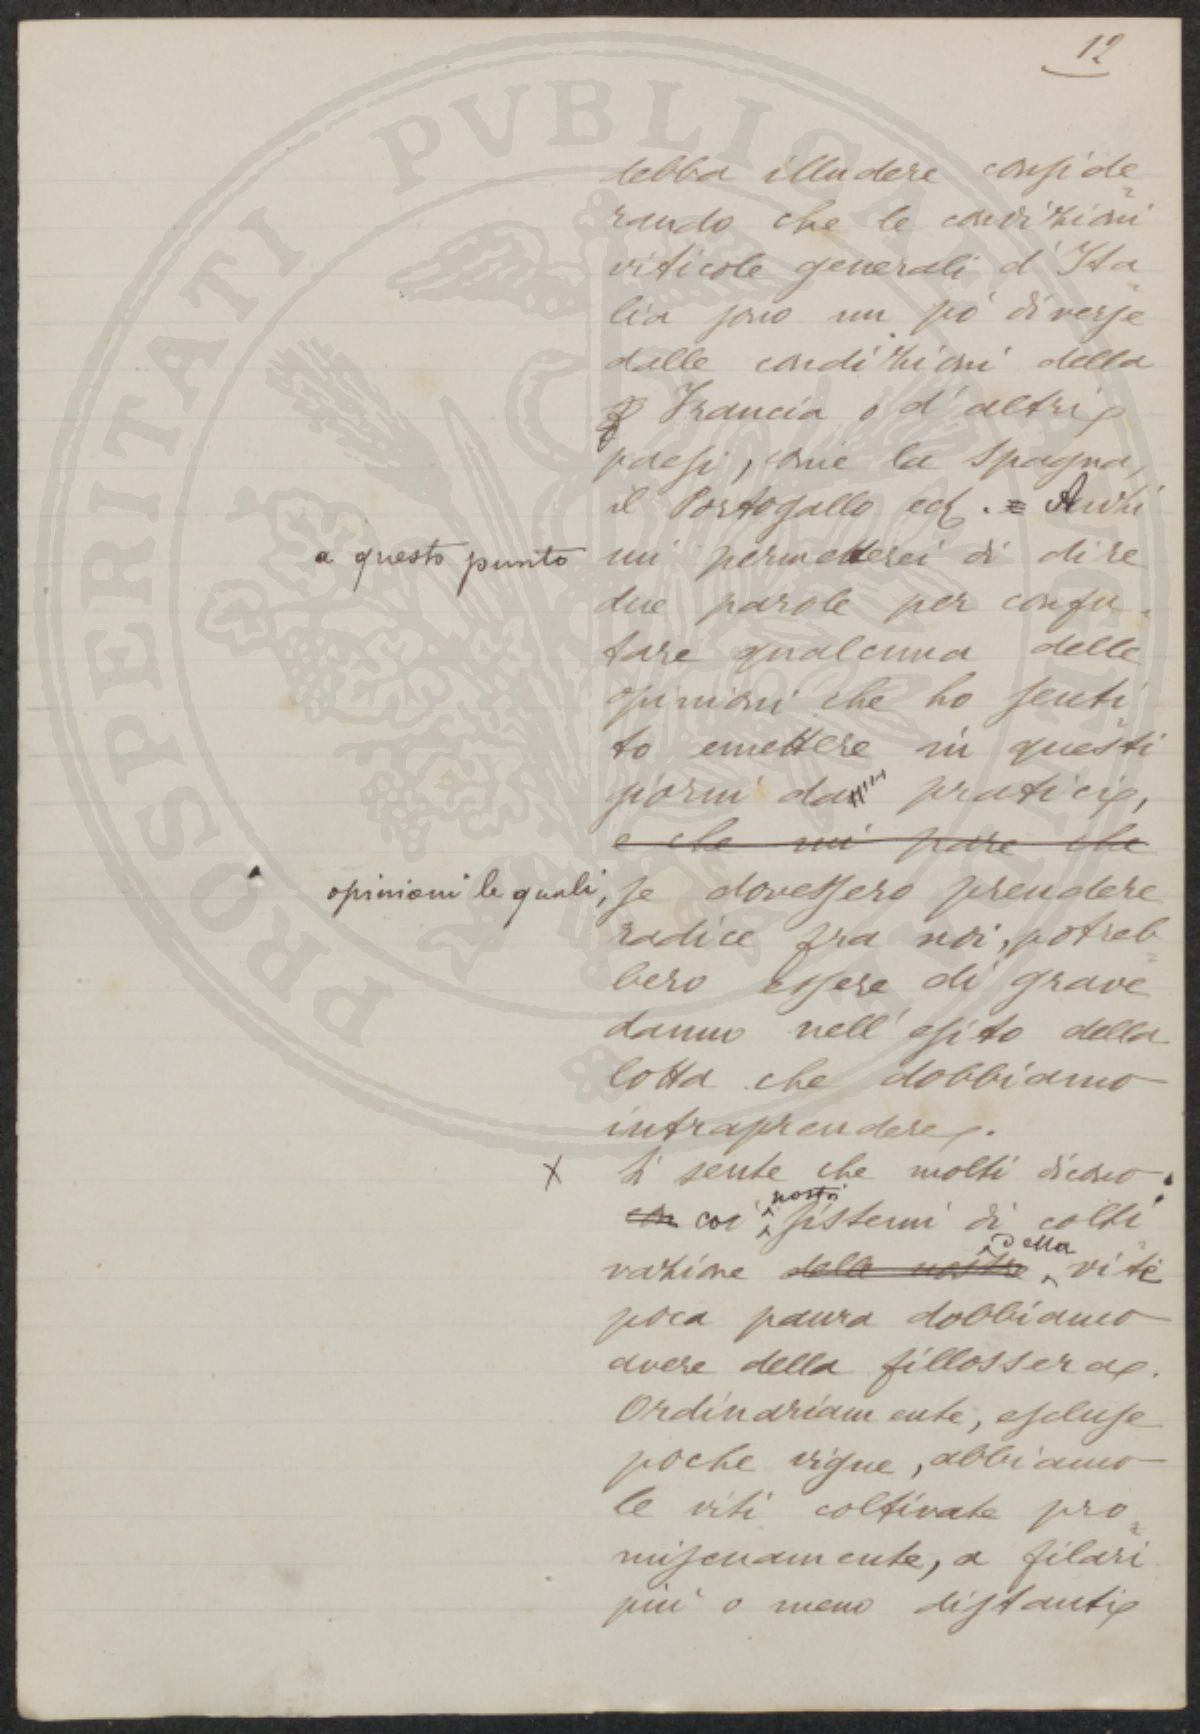 12
debba illudere conside
rando che le condizioni
viticole generali d'Ita
lia sono un pó diverse
dalle condizioni della
Francia o d'altri
paesi, come la Spagna,
il Portogallo ecc. = Anzi
a questo punto mi permetterei di dire
due parole per confu
tare qualcuna delle
opinioni che ho senti
to emettere in questi
giorni dai pratici,
e che mi pare che
opinioni le quali, se dovessero prendere
radice fra noi, potreb
bero essere di grave
danno nell'esito della
lotta che dobbiamo
intraprendere.
X Si sente che molti dicono:
con coi nostri sistemi di colti
vazione delle nostre della vite
poca paura dobbiamo
avere della fillossera.
Ordinariamente, escluse
poche vigne, abbiamo
le viti coltivate pro
miscuamente, a filari
più o meno distanti
PROSPERITATI PVBLICAE